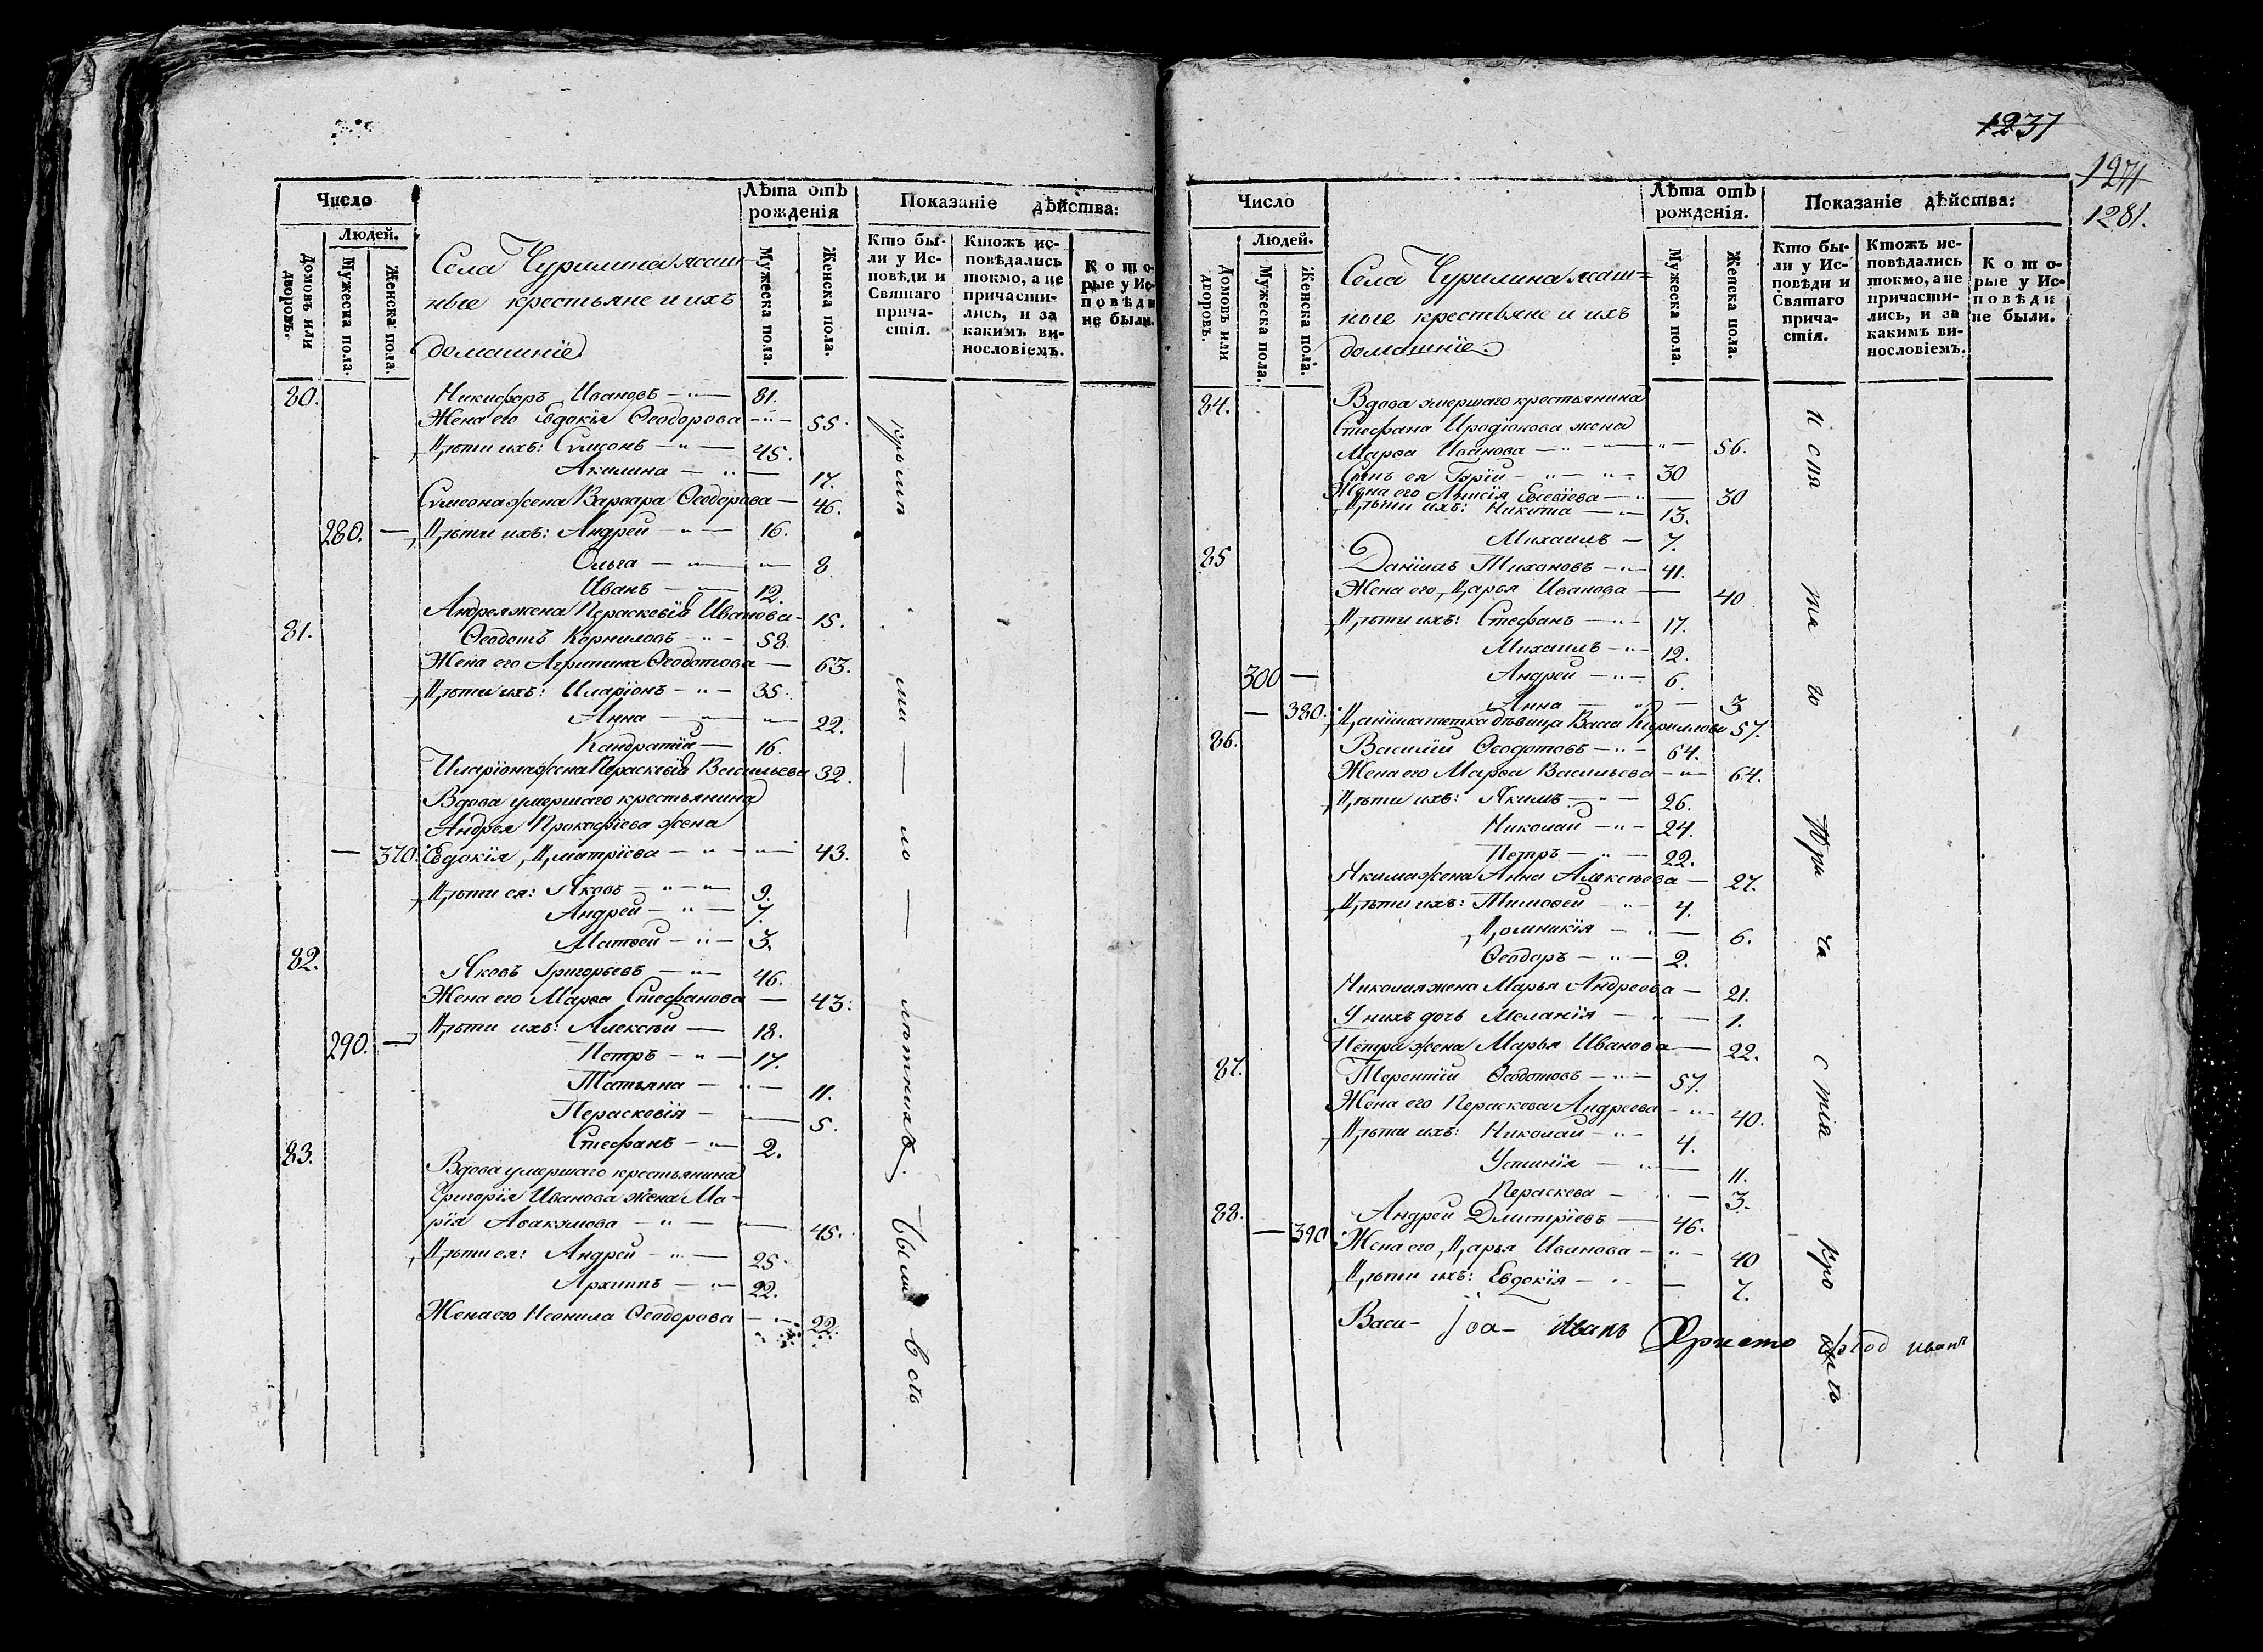 Число
Людей.
Домовъ или дворовъ.
Мужеска пола.
Женска пола.
Села Чурилина ясаш-
ные крестьяне и ихъ
домашніе
Лѣта отъ рожденія
Мужеска пола.
Женска пола.
Показаніе дѣйства:
Кто бы-
ли у Ис-
повѣди и
Святаго
прича-
стія.
Ктожъ ис-
повѣдались
токмо, а не
причасти-
лись, и за
какимъ ви-
нословіемъ.
К о т о-
рые у Ис-
п о в ѣ д и
не были.
80. Никифоръ Ивановъ — 81.
Жена его Евдокія Ѳеодорова — 55.
Дѣти ихъ: Сѵмеонъ — 45.
Акилина — 17.
Сѵмеона жена Варвара Ѳеодорова — 46.
280. — Дѣти ихъ: Андрей — 16.
Ольга — 8.
Иванъ — 12.
Андрея жена Параскевія Иванова — 15.
81. Ѳеодотъ Корниловъ — 58.
Жена его Агрипина Ѳеодотова — 63.
Дѣти ихъ: Иларіонъ — 35.
Анна — 22.
Кандратій — 16.
Иларіона жена Пераскевія Васильева 32.
Вдова умершаго крестьянина
Андрея Прокофіева жена
— 370. Евдокія Дмитріева — 43.
Дѣти ея: Яковъ — 9.
Андрей — 7.
Матвей — 3.
82. Яковъ Григорьевъ — 46.
Жена его Марѳа Стефанова — 43.
290. — Дѣти ихъ: Алексѣй — 18.
Петръ — 17.
Татьяна — 11.
Пераскевія — 5.
Стефанъ — 2.
83. Вдова умершаго крестьянина
Григорія Иванова жена Ма-
рія Авакумова — 45.
Дѣти ея: Андрей — 25.
Архипъ — 22.
Жена его Неонила Ѳеодорова — 22.
кромѣ
ма — ло — лѣтнихъ.
Были всѣ
1237
1271
1281.
Число
Людей.
Домовъ или дворовъ.
Мужеска пола.
Женска пола.
Села Чурилина ясаш=
ные крестьяне и ихъ
домашніе.
Лѣта отъ рожденія.
Мужеска пола.
Женска пола.
Показаніе дѣйства:
Кто бы-
ли у Ис-
повѣди и
Святаго
прича-
стія.
Ктожъ ис-
повѣдались
токмо, а не
причасти-
лись, и за
какимъ ви-
нословіемъ.
К о т о-
рые у Ис-
п о в ѣ д и
не были.
84. Вдова умершаго крестьянина
Стефана Иродіонова жена
Марѳа Иванова — 56.
Сынъ ея Гурій — 30
Жена его Анисія Евсевіева — 30
Дѣти ихъ: Никита — 13.
Михаилъ — 7.
85 Даніилъ Тихоновъ — 41.
Жена его Дарья Иванова — 40
Дѣти ихъ: Стефанъ — 17.
Михаилъ — 12.
300 — Андрей — 6.
Анна — 3
— 380. Даніила тетка дѣвица Васса Кирилова 57.
86. Василій Ѳеодотовъ — 64.
Жена его Марѳа Васильева — 64.
Дѣти ихъ: Якимъ — 26.
Николай — 24.
Петръ — 22.
Якима жена Анна Алексѣева — 27.
Дѣти ихъ: Тимоѳей — 4.
Домникія — 6.
Ѳеодоръ — 2.
Николая жена Марья Андреева — 21.
У нихъ дочь Меланія — 1.
Петра жена Марья Иванова — 22.
87. Терентій Ѳеодотовъ — 57.
Жена его Пераскева Андреева — 40.
Дѣти ихъ: Николай — 4.
Устинія — 11.
Пераскева — 3.
88. Андрей Дмитріевъ — 46.
— 390 Жена его Дарья Иванова — 40
Дѣти ихъ: Евдокія — 7.
Васи- Іоа- Иванъ Христо Иванъ